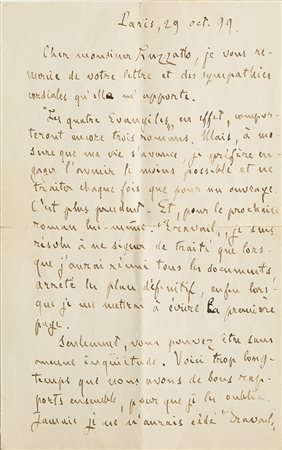 Paris, 29 oct. 99.
Cher monsieur Luzzatto, je vous re-
mercie de votre lettre et des sympathies
cordiales qu'elle m'apporte.
"Les quatre Evangiles", en effet, compor-
teront encore trois romans. Mais, à me-
sure que ma vie s'avance, je préfère en-
gager l'avenir le moins possible et ne
traiter chaque fois que pour un ouvrage.
C'est plus prudent. Et, pour le prochain
roman lui-même, "Travail", je suis
résolu à ne signer de traité que lors-
que j'aurai réuni tous les documents,
arrêté le plan définitif, enfin lors-
que je me mettrai à écrire la première
page.
Seulement, vous pouvez être sans
aucune inquiétude. Voici trop long-
temps que nous avons de bons rap-
ports ensemble, pour que je les oublie.
Jamais je n'aurais cédé "Travail,